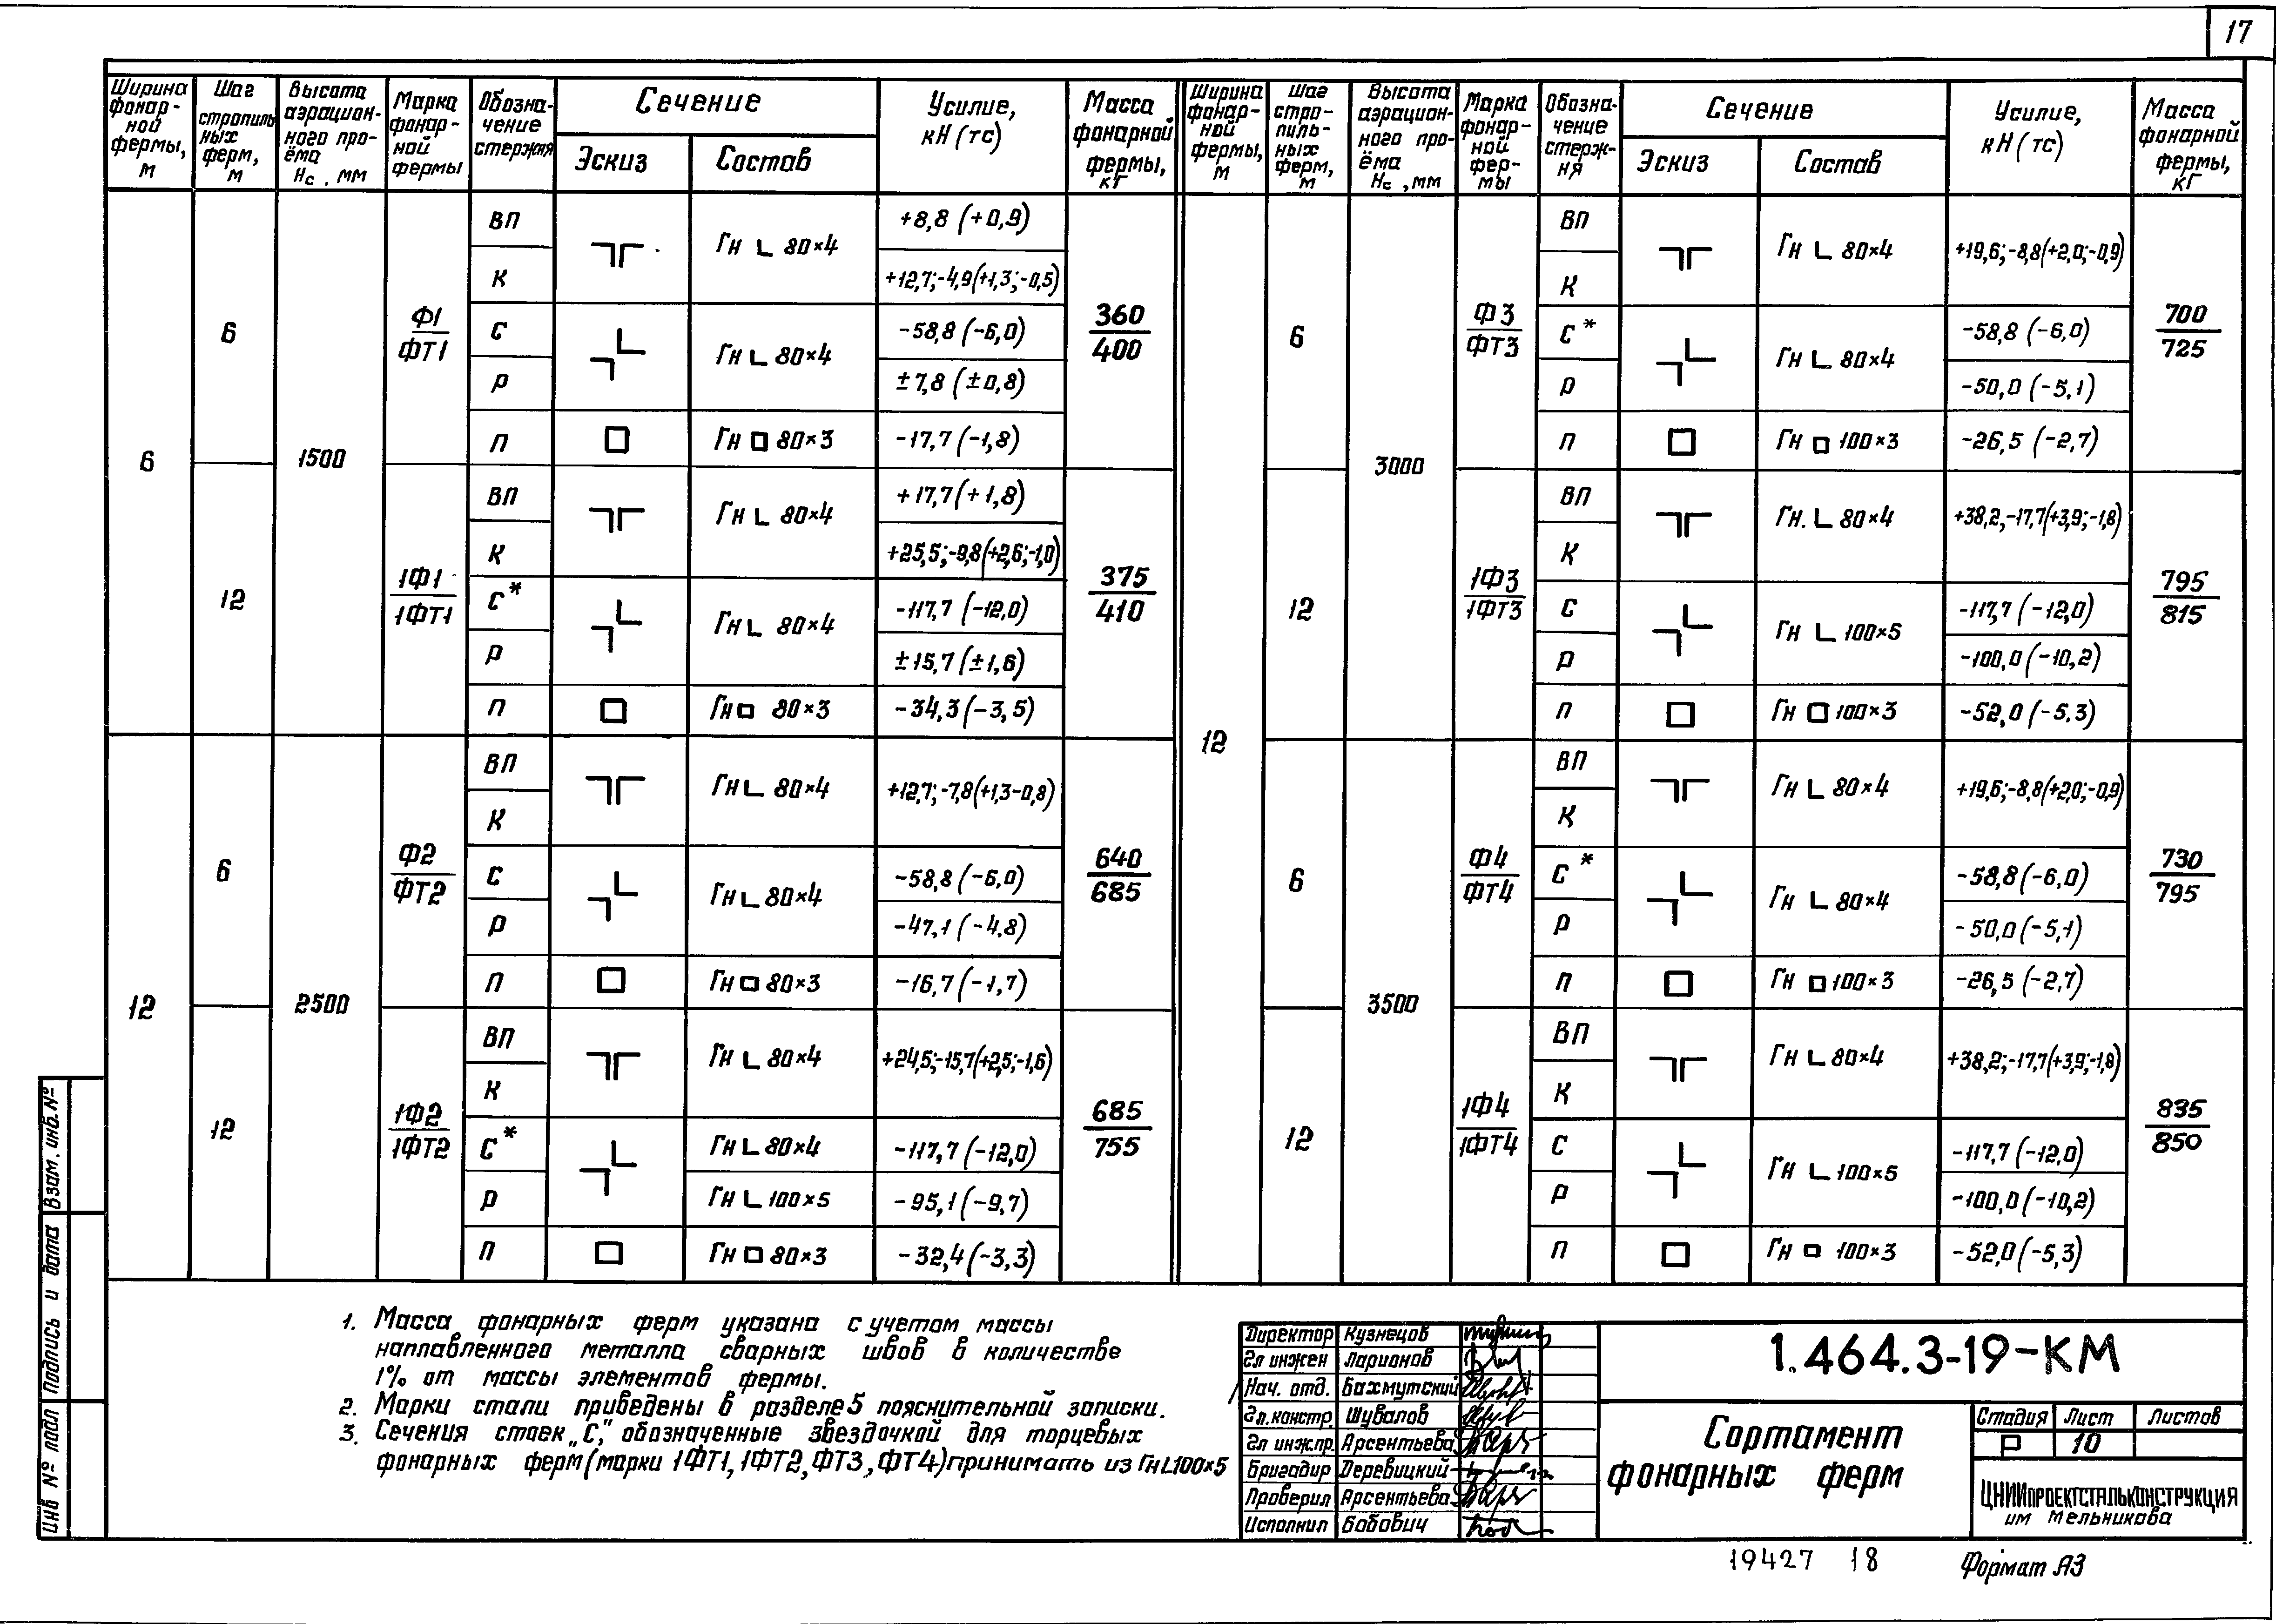 17
Ширина фонарной фермы, м
Шаг стропильных ферм, м
Высота аэрационного проёма Нс, мм
Марка фонарной фермы
Обозначение стержня
Сечение
Эскиз
Состав
Усилие, кН (тс)
Масса фонарной фермы, кг
Ширина фонарной фермы, м
Шаг стропильных ферм, м
Высота аэрационного проёма Нс, мм
Марка фонарной фермы
Обозначение стержня
Сечение
Эскиз
Состав
Усилие, кН (тс)
Масса фонарной фермы, кг
6
6
1500
Ф1
ФТ1
ВП
Гн L 80×4
+8,8 (+0,9)
К
+12,7;-4,9(+1,3;-0,5)
С
Гн L 80×4
-58,8 (-6,0)
Р
±7,8 (±0,8)
П
Гн □ 80×3
-17,7 (-1,8)
360
400
12
1Ф1
1ФТ1
ВП
Гн L 80×4
+17,7(+1,8)
К
+25,5;-9,8(+2,6;-1,0)
С*
Гн L 80×4
-117,7 (-12,0)
Р
±15,7 (±1,6)
П
Гн □ 80×3
-34,3 (-3,5)
375
410
12
6
2500
Ф2
ФТ2
ВП
Гн L 80×4
+12,7;-7,8(+1,3-0,8)
К
С
Гн L 80×4
-58,8 (-6,0)
Р
-47,1 (-4,8)
П
Гн □ 80×3
-16,7 (-1,7)
640
685
12
1Ф2
1ФТ2
ВП
Гн L 80×4
+24,5;-15,7(+2,5;-1,6)
К
С*
Гн L 80×4
-117,7 (-12,0)
Р
Гн L 100×5
-95,1 (-9,7)
П
Гн □ 80×3
-32,4 (-3,3)
685
755
12
6
3000
Ф3
ФТ3
ВП
Гн L 80×4
+19,6;-8,8(+2,0;-0,9)
К
С*
Гн L 80×4
-58,8 (-6,0)
Р
-50,0 (-5,1)
П
Гн □ 100×3
-26,5 (-2,7)
700
725
12
1Ф3
1ФТ3
ВП
Гн. L 80×4
+38,2;-17,7(+3,9;-1,8)
К
С
Гн L 100×5
-117,7 (-12,0)
Р
-100,0 (-10,2)
П
Гн □ 100×3
-52,0 (-5,3)
795
815
6
3500
Ф4
ФТ4
ВП
Гн L 80×4
+19,6;-8,8(+2,0;-0,9)
К
С*
Гн L 80×4
-58,8 (-6,0)
Р
-50,0 (-5,1)
П
Гн □ 100×3
-26,5 (-2,7)
730
795
12
1Ф4
1ФТ4
ВП
Гн L 80×4
+38,2;-17,7(+3,9;-1,8)
К
С
Гн L 100×5
-117,7 (-12,0)
Р
-100,0 (-10,2)
П
Гн □ 100×3
-52,0 (-5,3)
835
850
1. Масса фонарных ферм указана с учетом массы
наплавленного металла сварных швов в количестве
1% от массы элементов фермы.
2. Марки стали приведены в разделе 5 пояснительной записки.
3. Сечения стоек „С", обозначенные звездочкой для торцевых
фонарных ферм (марки 1ФТ1, 1ФТ2, ФТ3, ФТ4) принимать из Гн L100×5
Инв № подл
Подпись и дата
Взам. инв. №
Директор Кузнецов
Гл инжен Ларионов
Нач. отд. Бахмутский
Гл. констр Шувалов
Гл инж.пр. Арсентьева
Бригадир Деревицкий
Проверил Арсентьева
Исполнил Бобович
1.464.3-19-КМ
Сортамент
фонарных ферм
Стадия Лист Листов
Р 10
ЦНИИПРОЕКТСТАЛЬКОНСТРУКЦИЯ
им Мельникова
19427 18
Формат А3